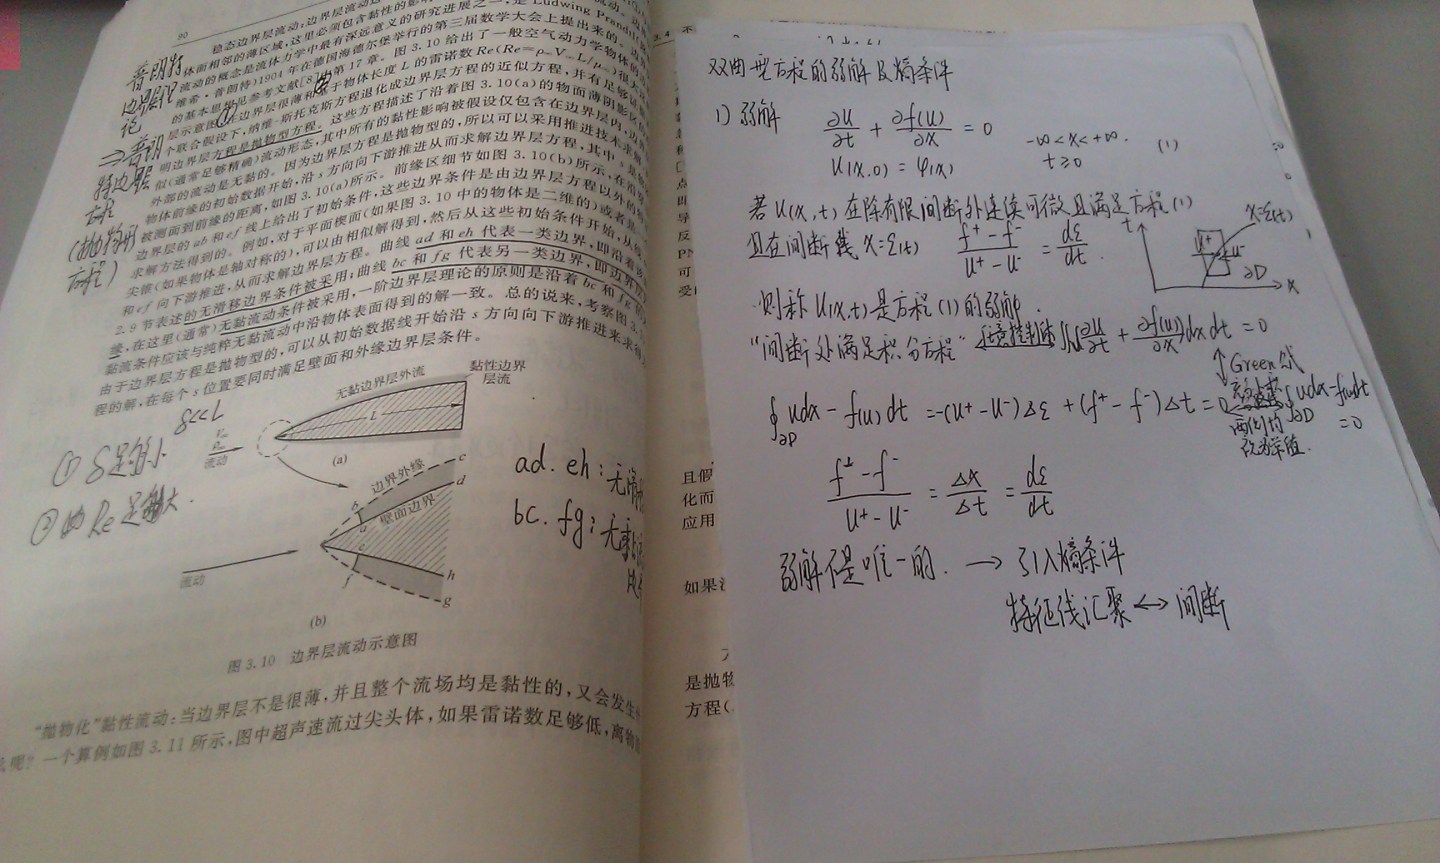 90
稳态边界层流动:边界层流动是
体面相邻的薄区域,这里必须包含黏性的影响
流动的概念是流体力学中最有深远意义的研究进展之一,是 Ludwing Prandtl
维希·普朗特)1904 年在德国海德尔堡举行的第三届数学大会上提出来的。边界
的基本思想见参考文献[87]中第 17 章。图 3.10 给出了一般空气动力学物体的
层示意图。在边界层很薄和基于物体长度 L 的雷诺数 Re(Re=ρ∞V∞L/μ∞)很大
个联合假设下,纳维-斯托克斯方程退化成边界层方程的近似方程,并有足够
明边界层方程是抛物型方程。这些方程描述了沿着图 3.10(a)的物面薄阴影区
似(通常足够精确)流动形态,其中所有的黏性影响被假设仅包含在边界层内,边界
外部的流动是无黏的。因为边界层方程是抛物型的,所以可以采用推进技术求解
物体前缘的初始数据开始,沿 s 方向向下游推进从而求解边界层方程,其中 s 是
被测面到前缘的距离,如图 3.10(a)所示。前缘区细节如图 3.10(b)所示,在沿穿
边界层的 ab 和 ef 线上给出了初始条件,这些边界条件是由边界层方程以外的
求解方法得到的。例如,对于平面楔面(如果图 3.10 中的物体是二维的)或者
尖锥(如果物体是轴对称的),可以由相似解得到,然后从这些初始条件开始,从线
和 ef 向下游推进,从而求解边界层方程。曲线 ad 和 eh 代表一类边界,即沿着
2.9 节表述的无滑移边界条件被采用;曲线 bc 和 fg 代表另一类边界,即边界层
缘,在这里(通常)无黏流动条件被采用,一阶边界层理论的原则是沿着 bc 和 fg 的
黏流条件应该与纯粹无黏流动中沿物体表面得到的解一致。总的说来,考察图 3.
由于边界层方程是抛物型的,可以从初始数据线开始沿 s 方向向下游推进来求得
程的解,在每个 s 位置要同时满足壁面和外缘边界层条件。
普朗特
边界层理
论
⇒普朗
特边界层
方程
(抛物形
方程)
δ<<L
① δ足够小
② 如 Re 足够大.
无黏边界层外流
黏性边界
层流
L
流动
(a)
边界外缘
壁面边界
a
b
c
d
f
h
g
流动
(b)
ad. eh:无滑
bc. fg:无黏流
图 3.10 边界层流动示意图
“抛物化”黏性流动:当边界层不是很薄,并且整个流场均是黏性的,又会发生什
么呢? 一个算例如图 3.11 所示,图中超声速流过尖头体,如果雷诺数足够低,离物
3.4 不
点
即
导
反
PN
可
受
且假
化而
应用
如果沿
是抛物
方程(
双曲型方程的弱解及熵条件
1) 弱解
∂u/∂t + ∂f(u)/∂x = 0
-∞<x<+∞. (1)
u(x,0) = φ(x)
t≥0
若 u(x,t) 在除有限间断外连续可微且满足方程(1)
且在间断线 x=ε(t) (f⁺-f⁻)/(u⁺-u⁻) = dε/dt.
t
u⁺
u⁻
∂D
x=ε(t)
x
则称 u(x,t) 是方程(1)的弱解
“间断处满足积分方程” ∬(∂u/∂t + ∂f(u)/∂x)dxdt = 0
↕ Green公式
∮∂D udx - f(u)dt = -(u⁺-u⁻)Δε + (f⁺-f⁻)Δt = 0
∮∂D udx-f(u)dt =0
两侧均
改为常值.
(f⁺-f⁻)/(u⁺-u⁻) = Δx/Δt = dε/dt
弱解不是唯一的. → 引入熵条件
特征线汇聚 ↔ 间断